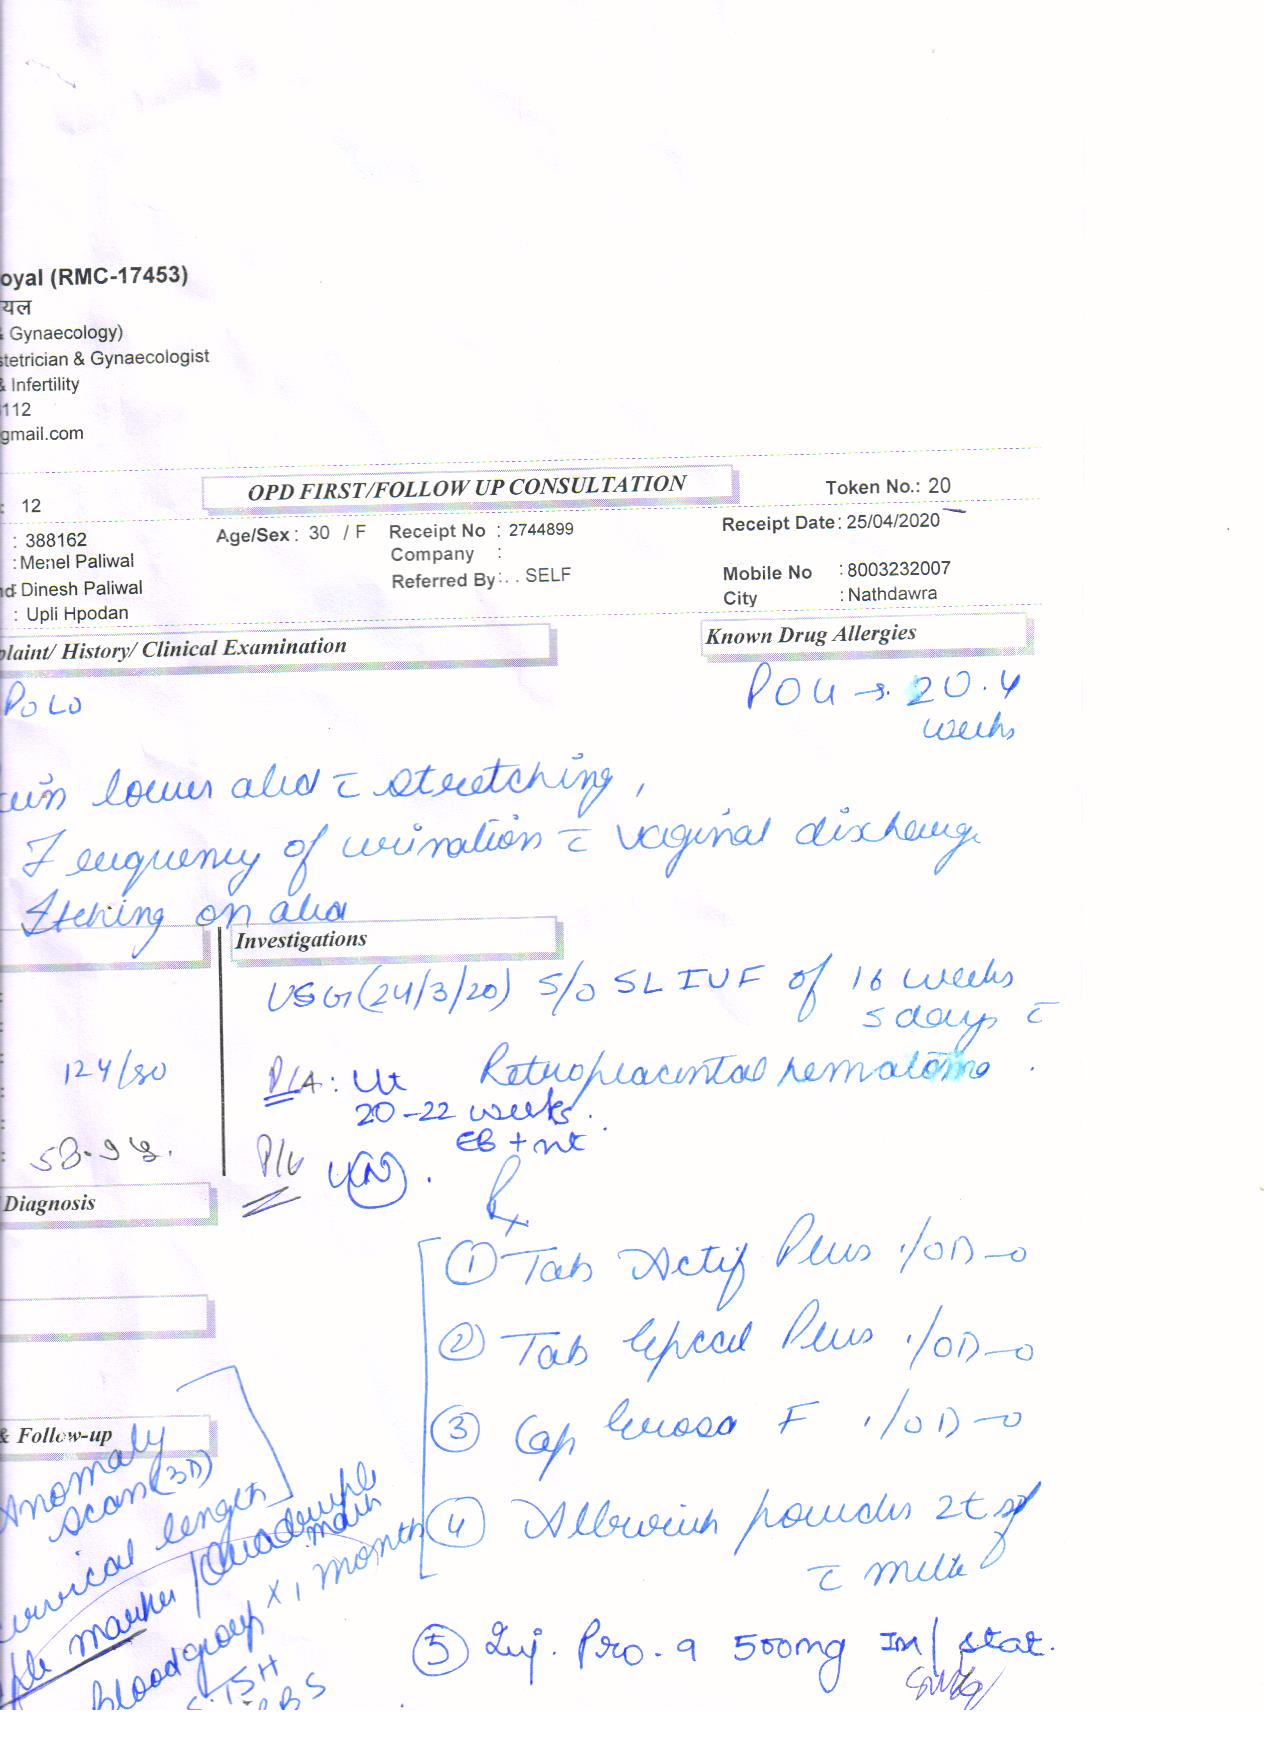 oyal (RMC-17453)
यल
Gynaecology)
tetrician & Gynaecologist
& Infertility
112
gmail.com
: 12
OPD FIRST/FOLLOW UP CONSULTATION
Token No.: 20
: 388162
Age/Sex : 30 / F
Receipt No : 2744899
Receipt Date: 25/04/2020
: Menel Paliwal
Company :
Mobile No : 8003232007
nd: Dinesh Paliwal
Referred By: . . SELF
City : Nathdawra
: Upli Hpodan
plaint/ History/ Clinical Examination
Known Drug Allergies
P0L0
POG → 20.4
weeks
lower abd c̄ stretching,
Frequency of urination c̄ vaginal discharge
Itching on abd
Investigations
USG (24/3/20) S/O SLIUF of 16 weeks
5 days c̄
Retroplacental hematoma.
124/80
P/A : Ut
20-22 weeks.
EB + nt
58.9
P/V
Diagnosis
Rx
① Tab Actif Plus 1/OD
② Tab Plus 1/OD
③ Cap F 1/OD
④ powder 2t sf
c̄ milk
⑤ Inj. Pro-9 500mg IM/stat.
& Follow-up
Anomaly
scan (3D)
cervical length
marker / Quadruple
mark
Blood group x 1 month
S. TSH
RBS